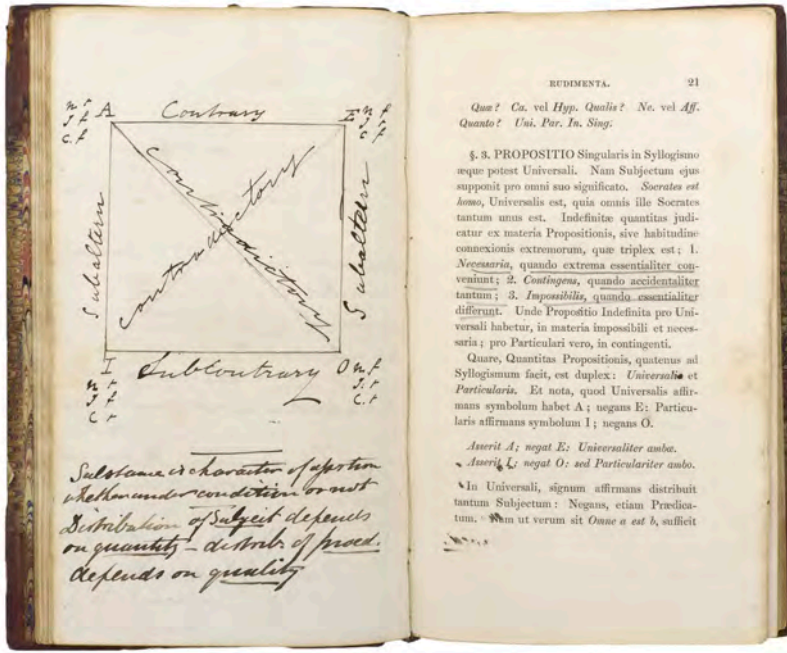 A Contrary E
n t
I f
C f
n f
I t
C f
Subaltern
contradictory
contradictory
Subaltern
I SubContrary O
n t
I f
C t
n f
I t
C t
Substance is character of assertion
whether under condition or not
Distribution of Subject depends
on quantity – distrib of pred.
depends on quality
RUDIMENTA. 21
Quæ? Ca. vel Hyp. Qualis? Ne. vel Aff.
Quanto? Uni. Par. In. Sing.
§. 3. PROPOSITIO Singularis in Syllogismo
æque potest Universali. Nam Subjectum ejus
supponit pro omni suo significato. Socrates est
homo, Universalis est, quia omnis ille Socrates
tantum unus est. Indefinitæ quantitas judi-
catur ex materia Propositionis, sive habitudine
connexionis extremorum, quæ triplex est; 1.
Necessaria, quando extrema essentialiter con-
veniunt; 2. Contingens, quando accidentaliter
tantum; 3. Impossibilis, quando essentialiter
differunt. Unde Propositio Indefinita pro Uni-
versali habetur, in materia impossibili et neces-
saria; pro Particulari vero, in contingenti.
Quare, Quantitas Propositionis, quatenus ad
Syllogismum facit, est duplex: Universalis et
Particularis. Et nota, quod Universalis affir-
mans symbolum habet A; negans E: Particu-
laris affirmans symbolum I; negans O.
Asserit A; negat E: Universaliter ambæ.
Asserit I; negat O: sed Particulariter ambo.
In Universali, signum affirmans distribuit
tantum Subjectum: Negans, etiam Prædica-
tum. Nam ut verum sit Omne a est b, sufficit